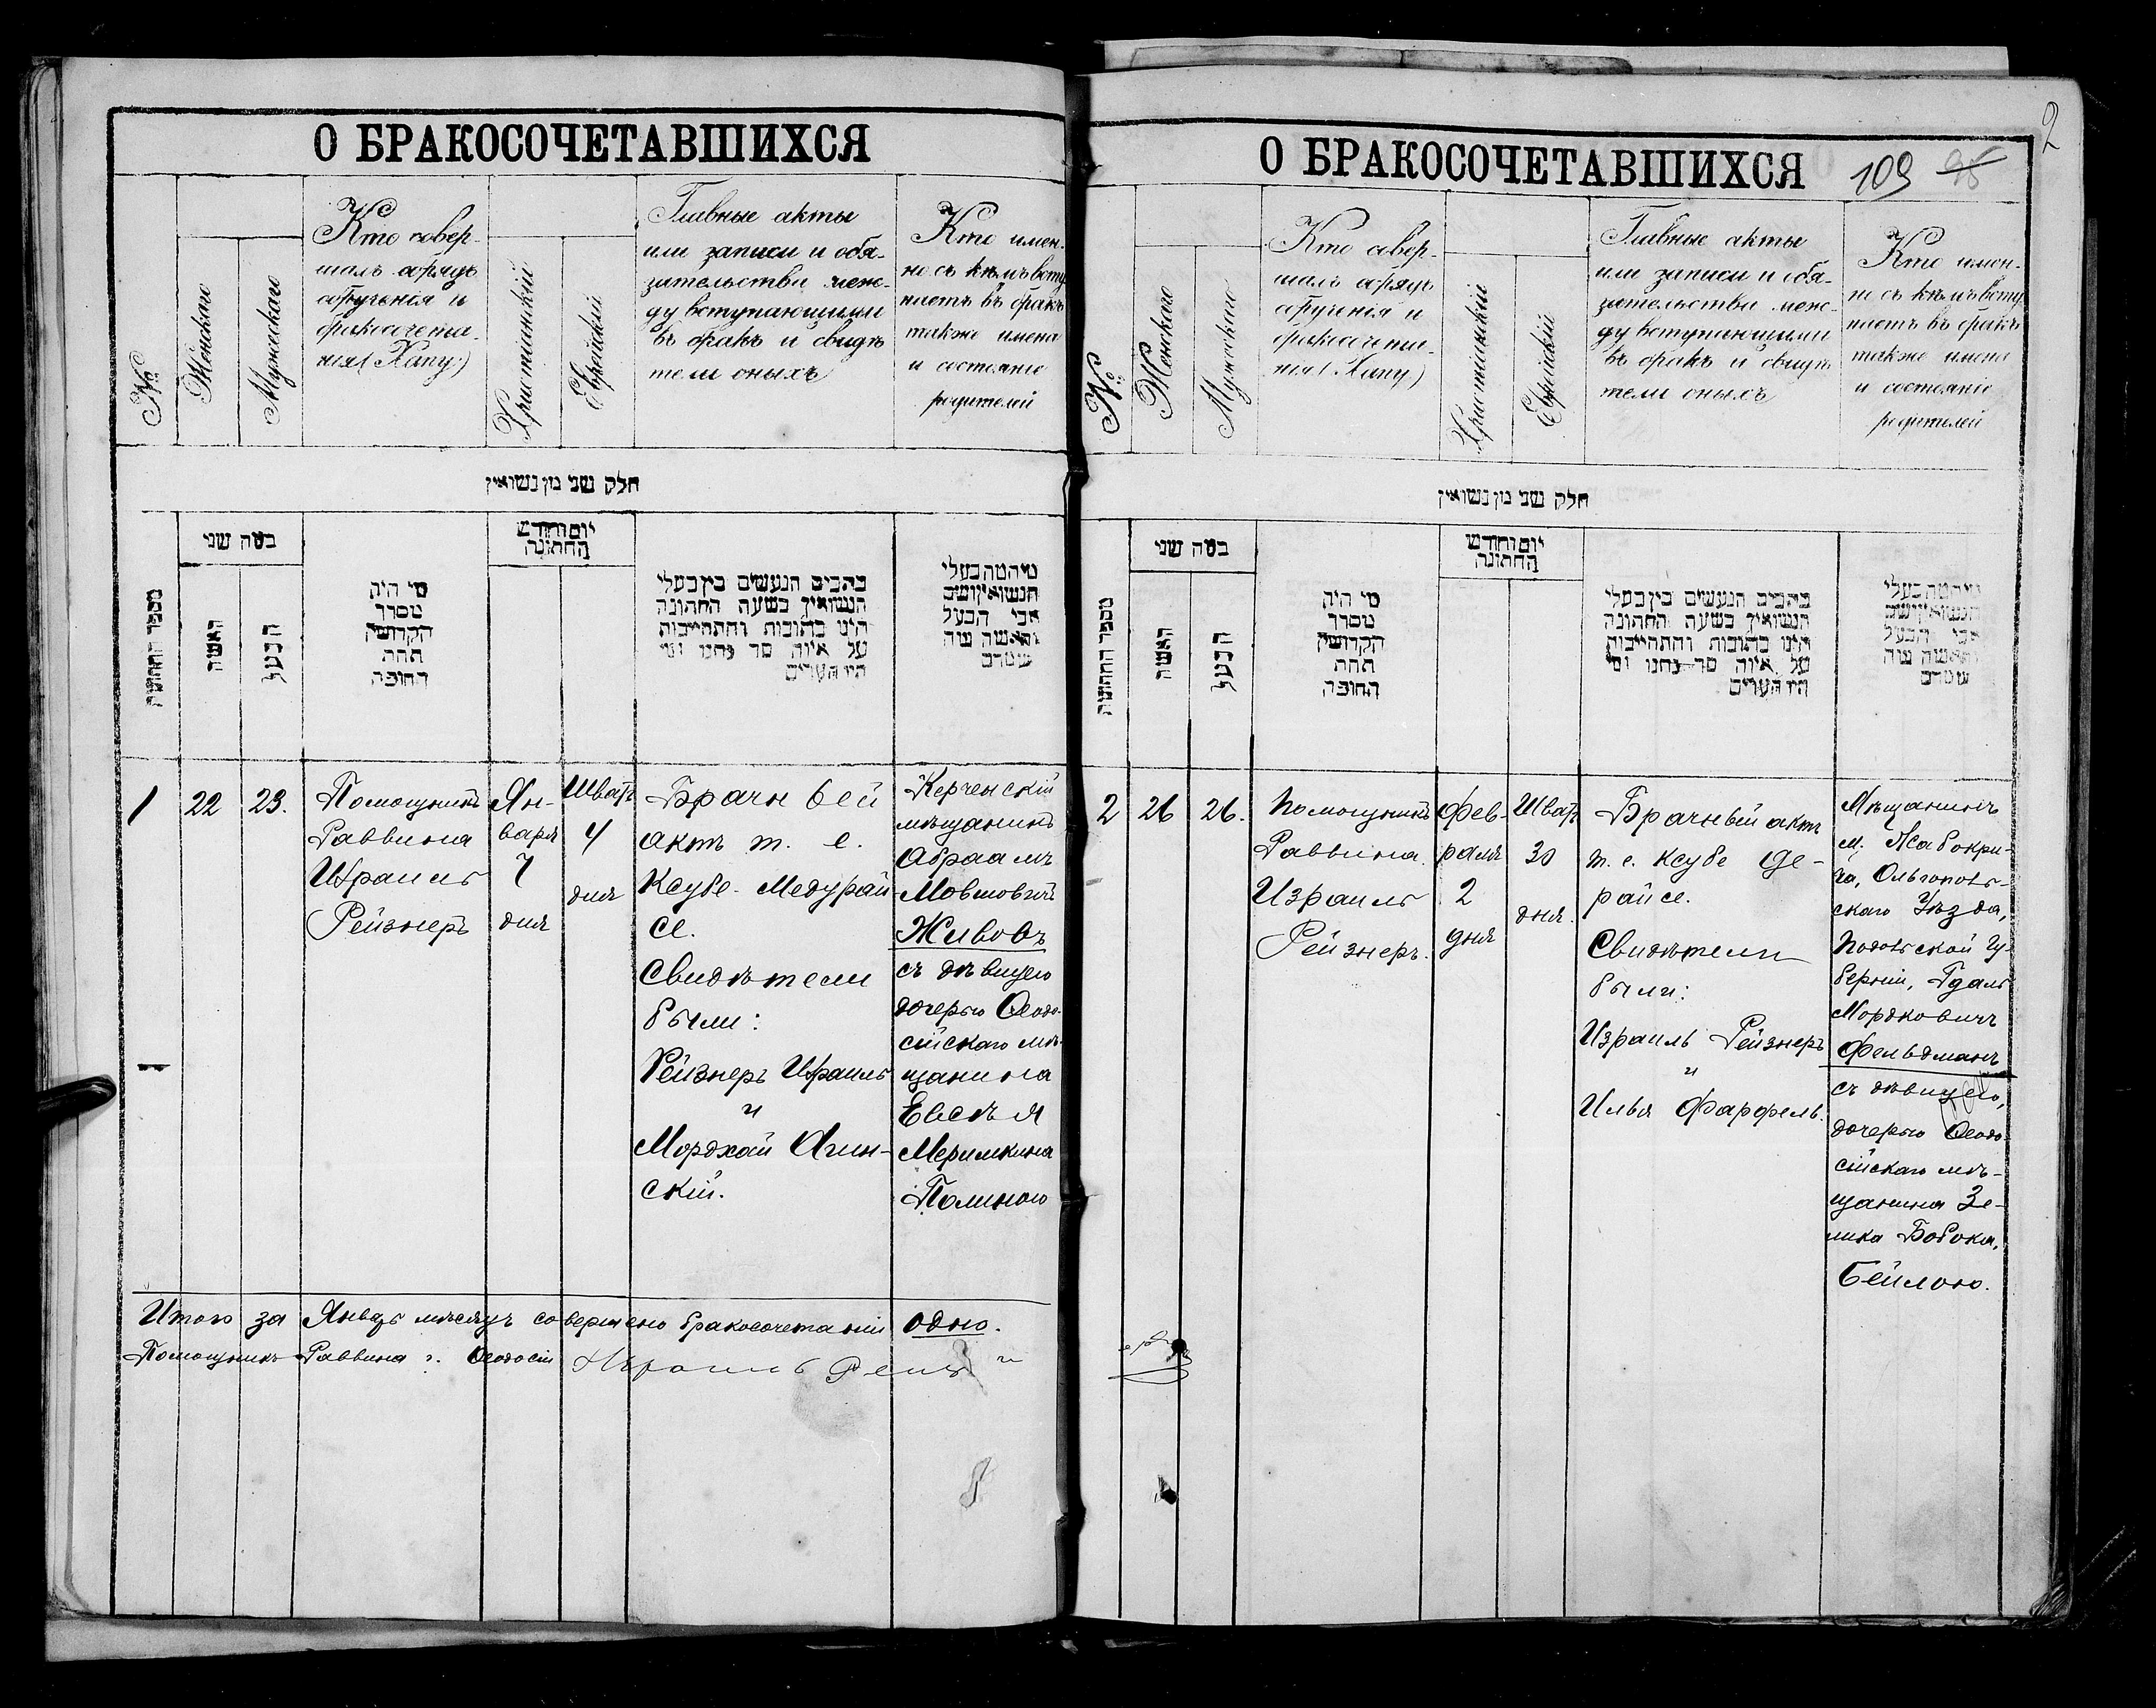 О БРАКОСОЧЕТАВШИХСЯ
№
Женскаго
Мужескаго
Кто совер-
шалъ обрядъ
обрученія и
бракосочета-
нія (Хапу)
Христіанскій
Еврейскій
Главные акты
или записи и обя-
зательства меж-
ду вступающими
въ бракъ и свидѣ
тели оныхъ
Кто имен-
но съ кѣмъ всту
паетъ въ бракъ
также имена
и состояніе
родителей
חלק שני מן נשואין
מספר החתונות
במה שני
האשה
הבעל
מי היה
מסדר
הקדושין
תחת
החופה
יום וחודש
החתונה
כתבים הנעשים בין בעלי
הנשואין בשעת החתונה
היינו כתובות והתחייבות
על איזה סך
היו העדים
אבי הבעל
1
22
23.
Помощникъ
Раввина
Израиль
Рейзнеръ
Ян-
варя
7
дня
Шватъ
4
дня
Брачный
актъ т. е.
Ксубе-Медурай
се.
Свидѣтели
были:
Рейзнеръ Израиль
и
Мордхай Агин-
скій.
Керченскій
мѣщанинъ
Абраамъ
Мовшовичъ
Живовъ
съ дѣвицею
дочерью Ѳеодо-
сійскаго мѣ-
щанина
Евсѣя
Меримкина
Полиною
Итого за Январь мѣсяцъ совершено бракосочетаній одно.
Помощникъ Раввина г. Ѳеодосіи Израиль
2
О БРАКОСОЧЕТАВШИХСЯ
109
№
Женскаго
Мужескаго
Кто совер-
шалъ обрядъ
обрученія и
бракосочета-
нія (Хапу)
Христіанскій
Еврейскій
Главные акты
или записи и обя-
зательства меж-
ду вступающими
въ бракъ и свидѣ
тели оныхъ
Кто имен-
но съ кѣмъ всту
паетъ въ бракъ
также имена
и состояніе
родителей
חלק שני מן נשואין
מספר החתונות
במה שני
האשה
הבעל
מי היה
מסדר
הקדושין
תחת
החופה
יום וחודש
החתונה
כתבים הנעשים בין בעלי
הנשואין בשעת החתונה
היינו כתובות והתחייבות
על איזה סך
היו העדים
2
26
26.
Помощникъ
Раввина.
Израиль
Рейзнеръ.
Фев-
раля
2
дня
Шватъ
30
дня.
Брачный актъ
т. е. Ксубе Де-
райсе.
Свидѣтели
были:
Израиль Рейзнеръ
и
Илья Фарфель.
Мѣщанинъ
м. Жабокри-
ча, Ольгополь-
скаго Уѣзда,
Подольской Гу-
берніи, Гдаль
Мордковичъ
Фельдманъ
съ дѣвицею,
дочерью Ѳеодо-
сійскаго мѣ-
щанина Зе-
лика Бобока,
Бейлою.